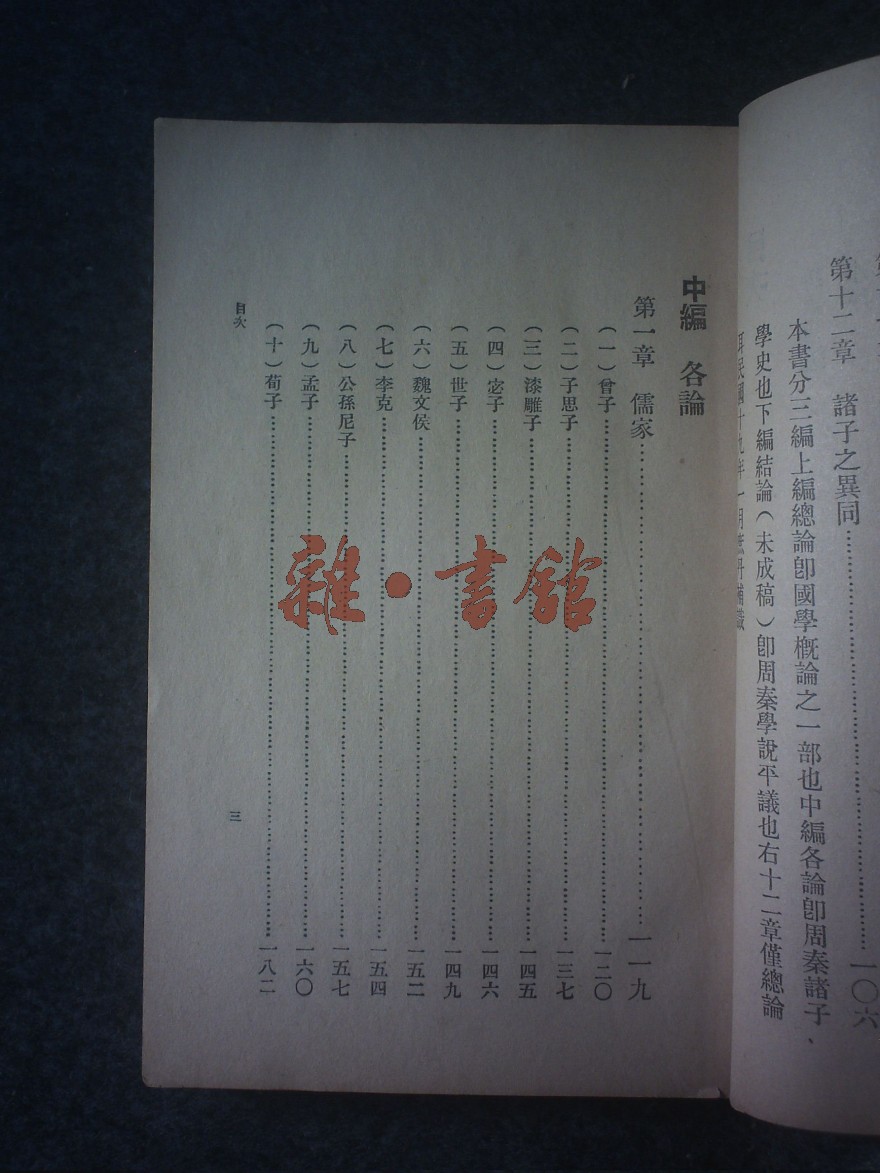 第十二章 諸子之異同……一〇六
本書分三編上編總論卽國學槪論之一部也中編各論卽周秦諸子、
學史也下編結論（未成稿）卽周秦學說平議也右十二章僅總論
耳民國十九年一月
中編 各論
第一章 儒家……一一九
（一）曾子……一二〇
（二）子思子……一三七
（三）漆雕子……一四五
（四）宓子……一四六
（五）世子……一四九
（六）魏文侯……一五二
（七）李克……一五四
（八）公孫尼子……一五七
（九）孟子……一六〇
（十）荀子……一八二
目次
三
雜·書館